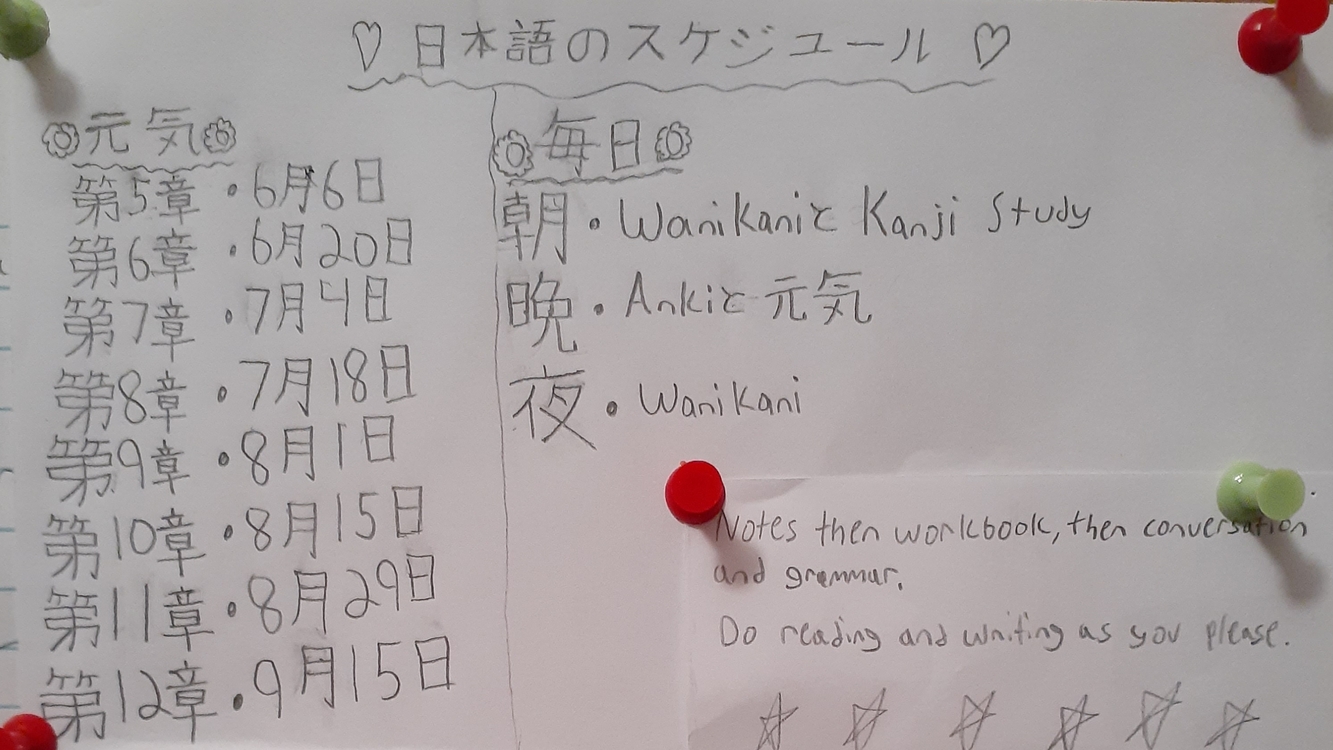 ♡ 日本語のスケジュール ♡
元気
第5章・6月6日
第6章・6月20日
第7章・7月4日
第8章・7月18日
第9章・8月1日
第10章・8月15日
第11章・8月29日
第12章・9月15日
毎日
朝・Wanikaniと Kanji Study
晩・Ankiと 元気
夜・Wanikani
Notes then workbook, then conversation
and grammar.
Do reading and writing as you please.